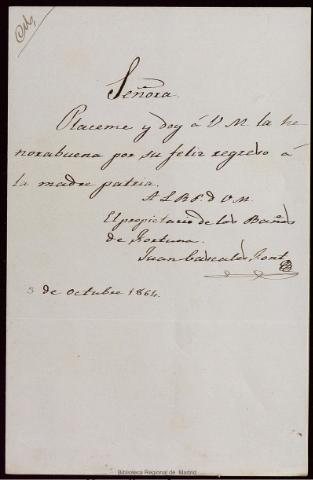 Señora.
Placeme y doy á V M la he
norabuena por su feliz regreso á
la madre patria.
A L R P. d V M.
El propietario de los Baños
de Fortuna.
Juan Cascales Font
5 de Octubre 1864.
Biblioteca Regional de Madrid